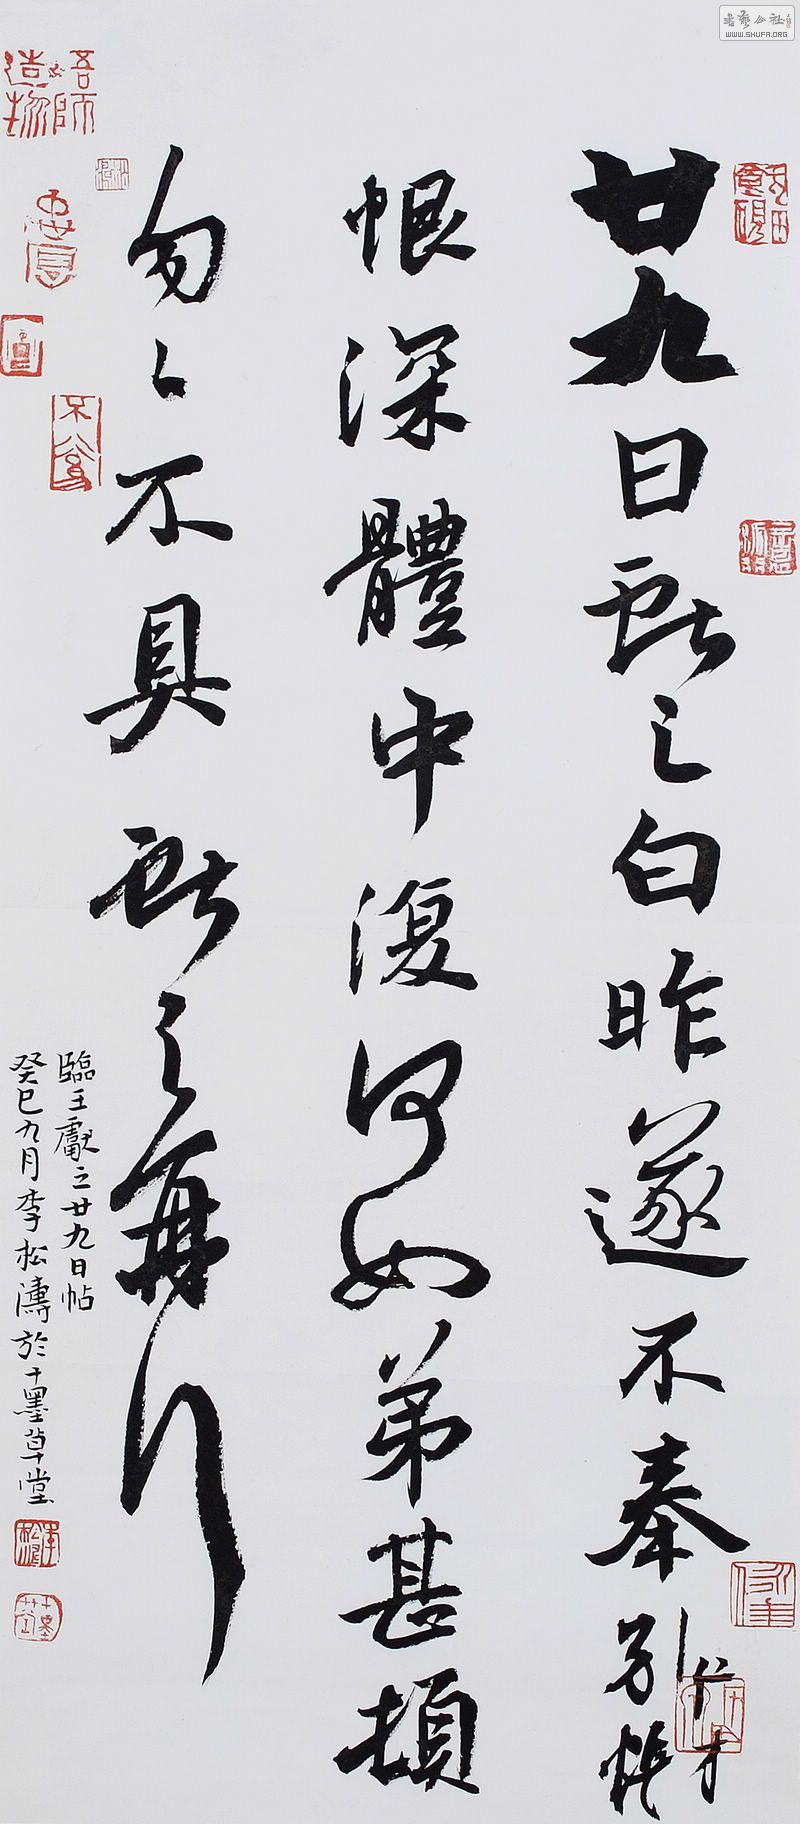 书艺公社
WWW.SHUFA.ORG
廿九日獻之白昨遂不奉別悵
恨深體中復何如弟甚頓
匆々不具獻之再拜
臨王獻之廿九日帖
癸巳九月李松濤於墨草堂
吾師造物